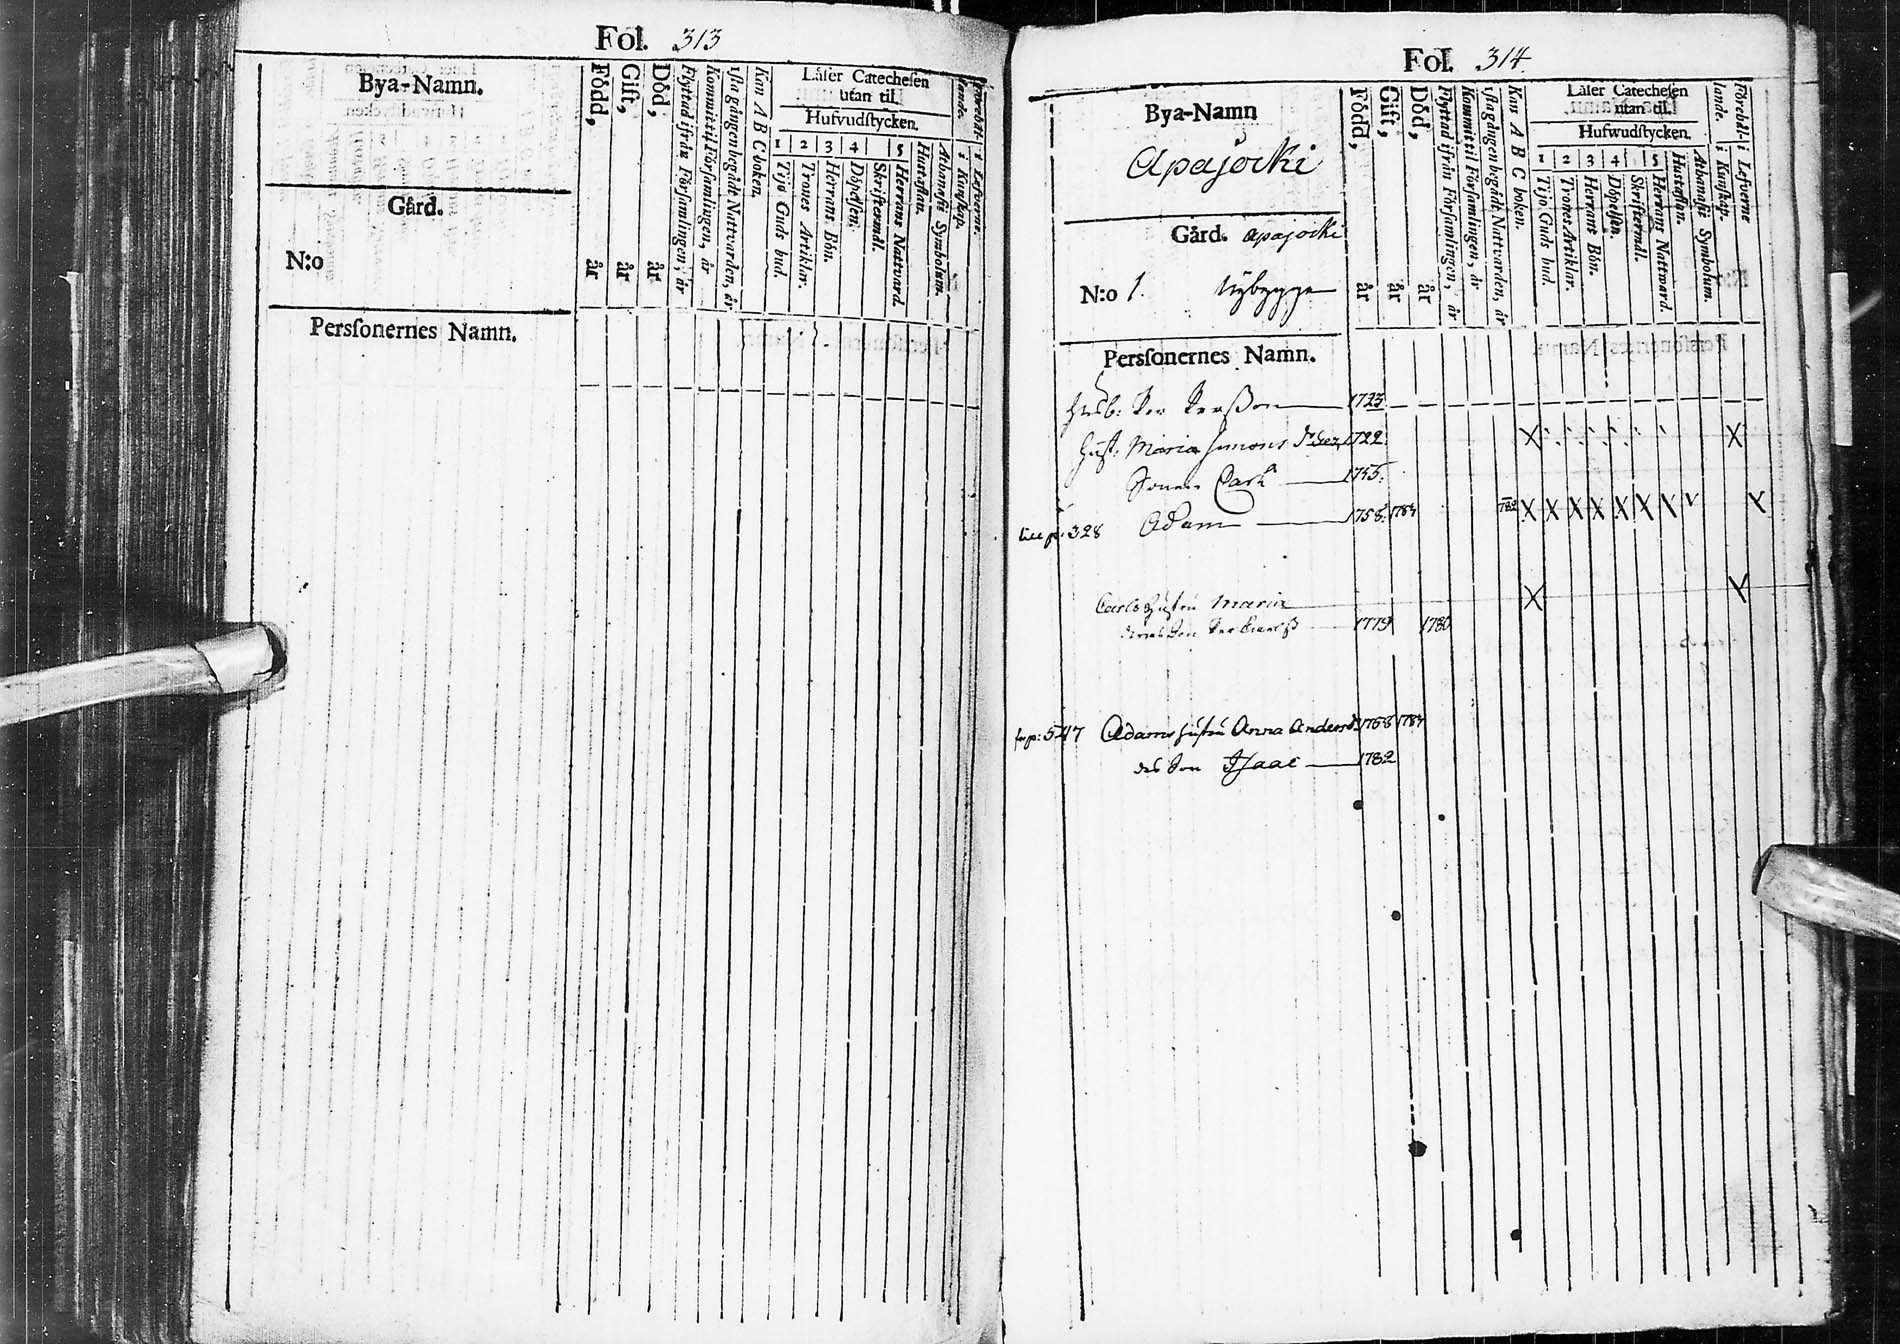 Fol. 313
Bya-Namn.
Gård.
N:o
Persſonernes Namn.
Född, år
Gift, år
Död, år
Flyttad ifrån Församlingen, år
Kommit til Församlingen, år
1sta gången begådt Nattvarden, år
Kan A B C boken.
Låſer Catecheſen
utan til.
Hufvudſtycken.
1 Tijo Guds bud.
2 Trones Artiklar.
3 Herrans Bön.
4 Döpelſen.
Skriftermål.
5 Herrans Nattvard.
Huſtaflan.
Athanaſii Symbolum.
i Kunſkap.
i Lefverne.
Fol. 314.
Bya-Namn
Apajocki
Gård. Apajocki
N:o 1. Nybygge
Persſonernes Namn.
Född, år
Gift, år
Död, år
Flyttad ifrån Församlingen, år
Kommit til Församlingen, år
1sta gången begådt Nattvarden, år
Kan A B C boken.
Låſer Catecheſen
utan til.
Hufwudſtycken.
1 Tijo Guds bud.
2 Trones Artiklar.
3 Herrans Bön.
4 Döpelſen.
Skriftermål.
5 Herrans Nattvard.
Huſtaflan.
Athanaſii Symbolum.
Förehål-
lande.
i Kunſkap.
i Lefverne
Husb: Per Perßon 1723
Hust: Maria Simons 1722 X X
Sonen Carl 1755.
till p: 328 Adam 1758 1784 782 X X X X X X X X
Carls Hustru Maria X X
deras Son Per Carlß 1779 1780
fr p: 547 Adams hustru Anna Andersd. 1758 1784
des Son Isaac 1782